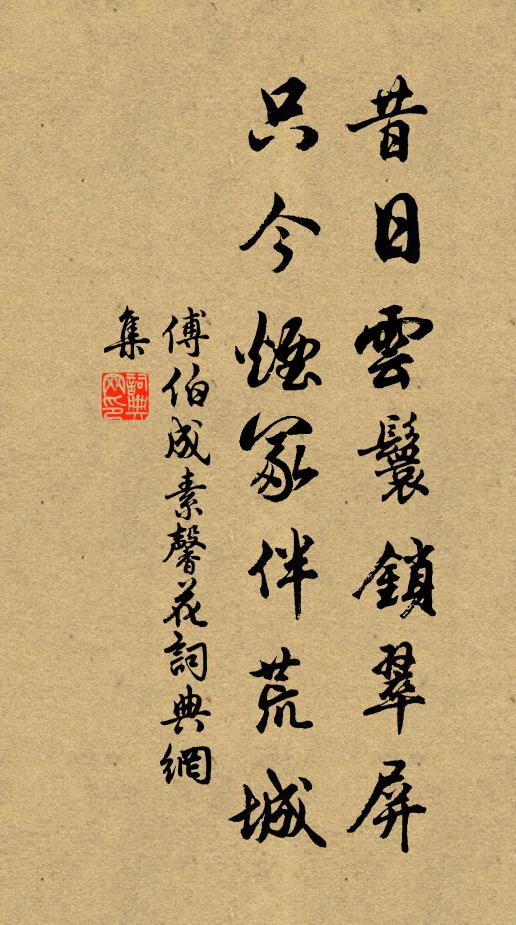 昔日雲鬟鎖翠屏
只今煙冢伴荒城
傅伯成素馨花詞典網
集
詞典網印